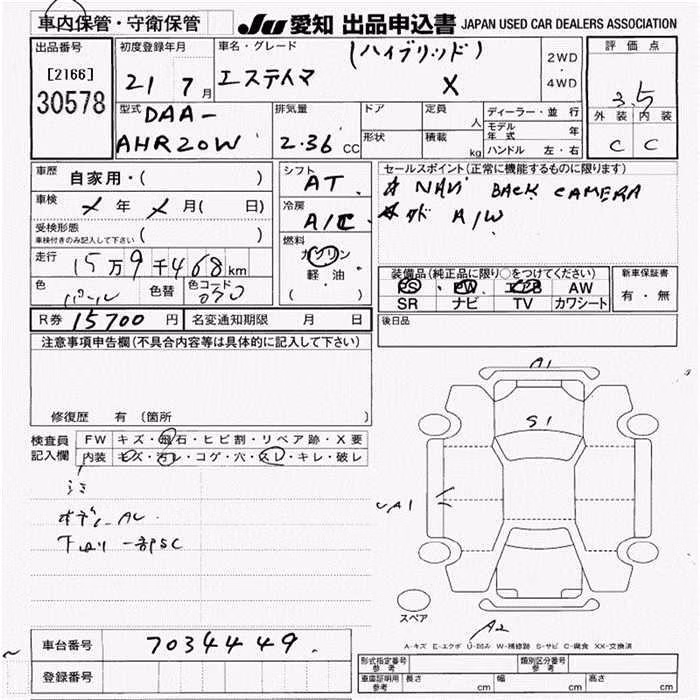 車内保管・守衛保管
JU 愛知 出品申込書 JAPAN USED CAR DEALERS ASSOCIATION
出品番号
[2166]
30578
初度登録年月
21 7 月
車名・グレード
(ハイブリッド)
エスティマ X
2WD
・
4WD
評価点
3.5
外装 内装
C C
型式 DAA-
AHR20W
排気量
2.36 CC
ドア
形状
定員 人
積載 kg
ディーラー・並行
モデル年式 年
ハンドル 左・右
車歴 自家用・( )
車検 メ 年 メ 月( 日)
受検形態
車検付きのみ記入して下さい ( )
走行 15万9千468km
色 パール 色替 色コード 070
シフト
AT
冷房
A/C
燃料
ガソリン
軽油
( )
セールスポイント(正常に機能するものに限ります)
NAVi BACK CAMERA
A/W
装備品(純正品に限り○をつけてください)
PS PW エアB AW
SR ナビ TV カワシート
新車保証書
有・無
R券 15700 円 名変通知期限 月 日
後日品
注意事項申告欄(不具合内容等は具体的に記入して下さい)
修復歴 有(箇所 )
検査員
記入欄
FW キズ・飛石・ヒビ割・リペア跡・X要
内装 キズ・汚レ・コゲ・穴・スレ・キレ・破レ
A1
S1
A1
A2
スペア
A-キズ E-エクボ U-凹み W-補修跡 S-サビ C-腐食 XX-交換済
車台番号 7034449
登録番号
型式指定番号 参考
類別区分番号 参考
車庫証明用 参考 長さ cm 幅 cm 高さ cm